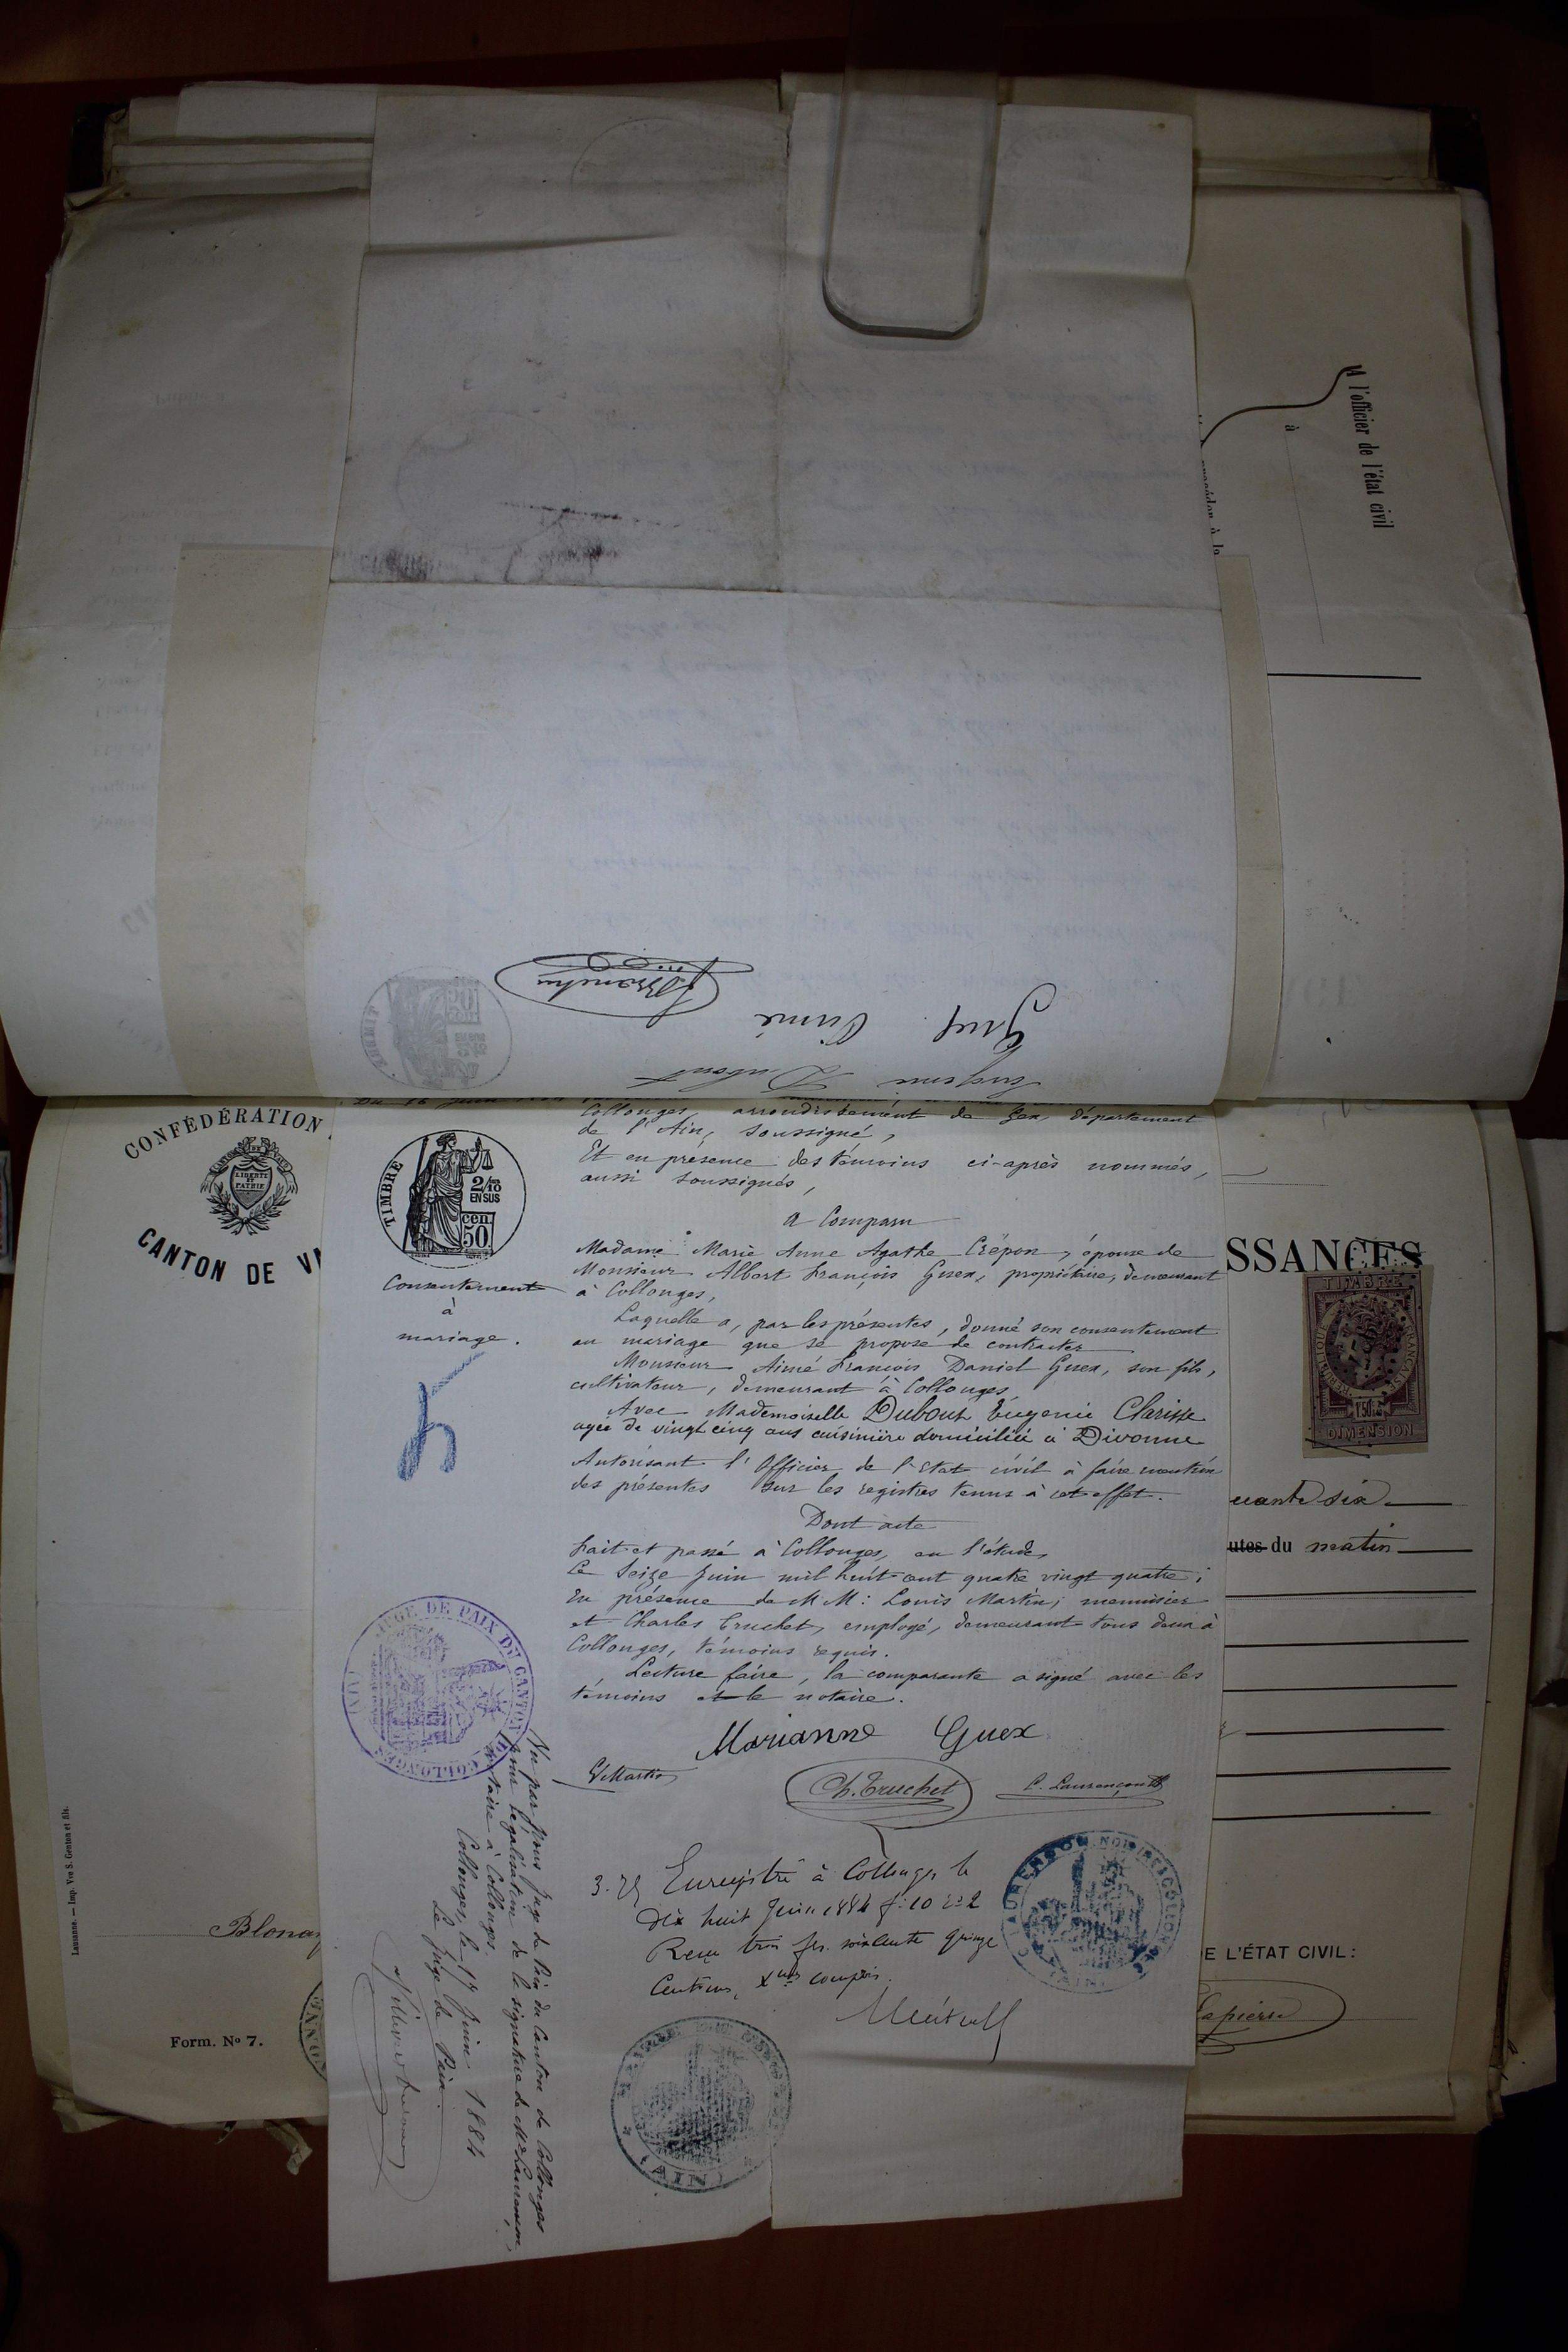 A l'officier de l'état civil
à
Guex Aimé
Eugénie Dubout
Du 16 Juin
Collonges, arrondissement de Gex, département
de l'Ain, soussigné,
Et en présence des témoins ci-après nommés,
aussi soussignés,
a Comparu
Madame Marie Anne Agathe Crépon, épouse de
Monsieur Albert François Guex, propriétaire, demeurant
à Collonges,
Laquelle a, par les présentes, donné son consentement
au mariage que se propose de contracter
Monsieur Aimé François Daniel Guex, son fils,
cultivateur, demeurant à Collonges,
Avec Mademoiselle Dubout Eugenie Clarisse
agée de vingt cinq ans cuisinière domiciliée à Divonne
Autorisant l'Officier de l'Etat civil à faire mention
des présentes sur les registres tenus à cet effet.
Dont acte
Fait et passé à Collonges, en l'étude,
Ce Seize Juin mil huit cent quatre vingt quatre;
En présence de MM: Louis Martin, menuisier
et Charles Truchet, employé, demeurant tous deux à
Collonges, témoins requis.
Lecture faire, la comparante a signé avec les
témoins et le notaire.
Marianne Guex
L Martin
Ch. Truchet
3.75 Enregistré à Collonges le
Dix huit Juin 1884 f: 10
Reçu trois frs. soixante quinze
Centimes, Xmes compris.
TIMBRE
2/10 EN SUS
cen 50
Consentement
à
mariage.
JUGE DE PAIX DU CANTON DE COLLONGES
(AIN)
Vu par Nous Juge de Paix du Canton de Collonges
pour légalisation de la signature de Me Laurençon,
notaire à Collonges.
Collonges, le 17 Juin 1884
Le Juge de Paix.
NOTAIRE A COLLONGES
(AIN)
(AIN)
CONFÉDÉRATION
LIBERTÉ ET PATRIE
CANTON DE V
Lausanne. — Imp. Vve S. Genton et fils.
Blonay
Form. No 7.
SSANCES
TIMBRE
RÉPUBLIQUE FRANÇAISE
1f50c
DIMENSION
uante six
utes du matin
E L'ÉTAT CIVIL:
Lapierre